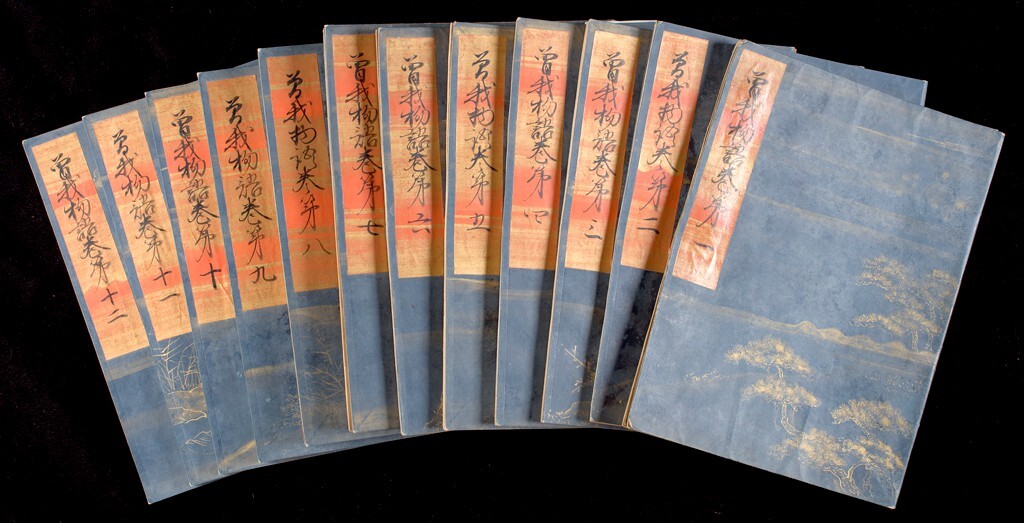 曽我物語巻第一
曽我物語巻第二
曽我物語巻第三
曽我物語巻第四
曽我物語巻第五
曽我物語巻第六
曽我物語巻第七
曽我物語巻第八
曽我物語巻第九
曽我物語巻第十
曽我物語巻第十一
曽我物語巻第十二